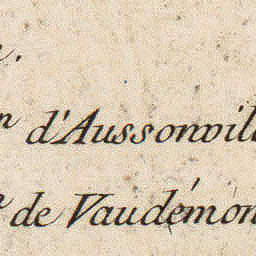 n d'Aussonvill
e de Vaudémon